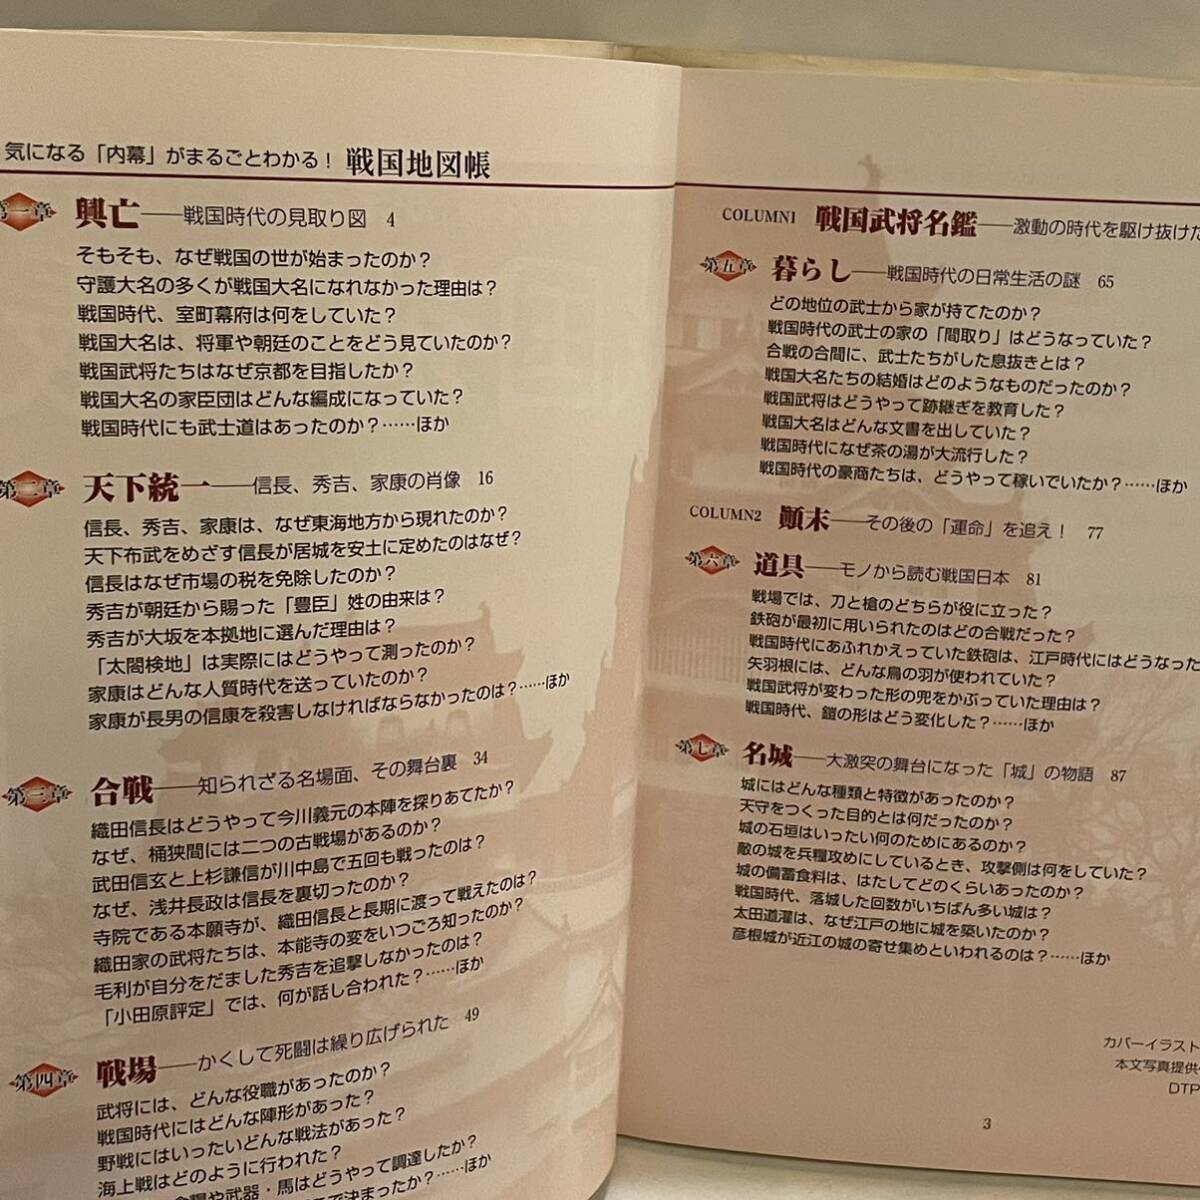 気になる「内幕」がまるごとわかる! 戦国地図帳
第一章 興亡――戦国時代の見取り図 4
そもそも、なぜ戦国の世が始まったのか?
守護大名の多くが戦国大名になれなかった理由は?
戦国時代、室町幕府は何をしていた?
戦国大名は、将軍や朝廷のことをどう見ていたのか?
戦国武将たちはなぜ京都を目指したか?
戦国大名の家臣団はどんな編成になっていた?
戦国時代にも武士道はあったのか?……ほか
第二章 天下統一――信長、秀吉、家康の肖像 16
信長、秀吉、家康は、なぜ東海地方から現れたのか?
天下布武をめざす信長が居城を安土に定めたのはなぜ?
信長はなぜ市場の税を免除したのか?
秀吉が朝廷から賜った「豊臣」姓の由来は?
秀吉が大坂を本拠地に選んだ理由は?
「太閤検地」は実際にはどうやって測ったのか?
家康はどんな人質時代を送っていたのか?
家康が長男の信康を殺害しなければならなかったのは?……ほか
第三章 合戦――知られざる名場面、その舞台裏 34
織田信長はどうやって今川義元の本陣を探りあてたか?
なぜ、桶狭間には二つの古戦場があるのか?
武田信玄と上杉謙信が川中島で五回も戦ったのは?
なぜ、浅井長政は信長を裏切ったのか?
寺院である本願寺が、織田信長と長期に渡って戦えたのは?
織田家の武将たちは、本能寺の変をいつごろ知ったのか?
毛利が自分をだました秀吉を追撃しなかったのは?
「小田原評定」では、何が話し合われた?……ほか
第四章 戦場――かくして死闘は繰り広げられた 49
武将には、どんな役職があったのか?
戦国時代にはどんな陣形があった?
野戦にはいったいどんな戦法があった?
海上戦はどのように行われた?
や武器・馬はどうやって調達したか?
決まったか?……ほか
COLUMN1 戦国武将名鑑――激動の時代を駆け抜けた
第五章 暮らし――戦国時代の日常生活の謎 65
どの地位の武士から家が持てたのか?
戦国時代の武士の家の「間取り」はどうなっていた?
合戦の合間に、武士たちがした息抜きとは?
戦国大名たちの結婚はどのようなものだったのか?
戦国武将はどうやって跡継ぎを教育した?
戦国大名はどんな文書を出していた?
戦国時代になぜ茶の湯が大流行した?
戦国時代の豪商たちは、どうやって稼いでいたか?……ほか
COLUMN2 顛末――その後の「運命」を追え! 77
第六章 道具――モノから読む戦国日本 81
戦場では、刀と槍のどちらが役に立った?
鉄砲が最初に用いられたのはどの合戦だった?
戦国時代にあふれかえっていた鉄砲は、江戸時代にはどうなった
矢羽根には、どんな鳥の羽が使われていた?
戦国武将が変わった形の兜をかぶっていた理由は?
戦国時代、鎧の形はどう変化した?……ほか
第七章 名城――大激突の舞台になった「城」の物語 87
城にはどんな種類と特徴があったのか?
天守をつくった目的とは何だったのか?
城の石垣はいったい何のためにあるのか?
敵の城を兵糧攻めにしているとき、攻撃側は何をしていた?
城の備蓄食料は、はたしてどのくらいあったのか?
戦国時代、落城した回数がいちばん多い城は?
太田道灌は、なぜ江戸の地に城を築いたのか?
彦根城が近江の城の寄せ集めといわれるのは?……ほか
カバーイラスト
本文写真提供
DTP
3